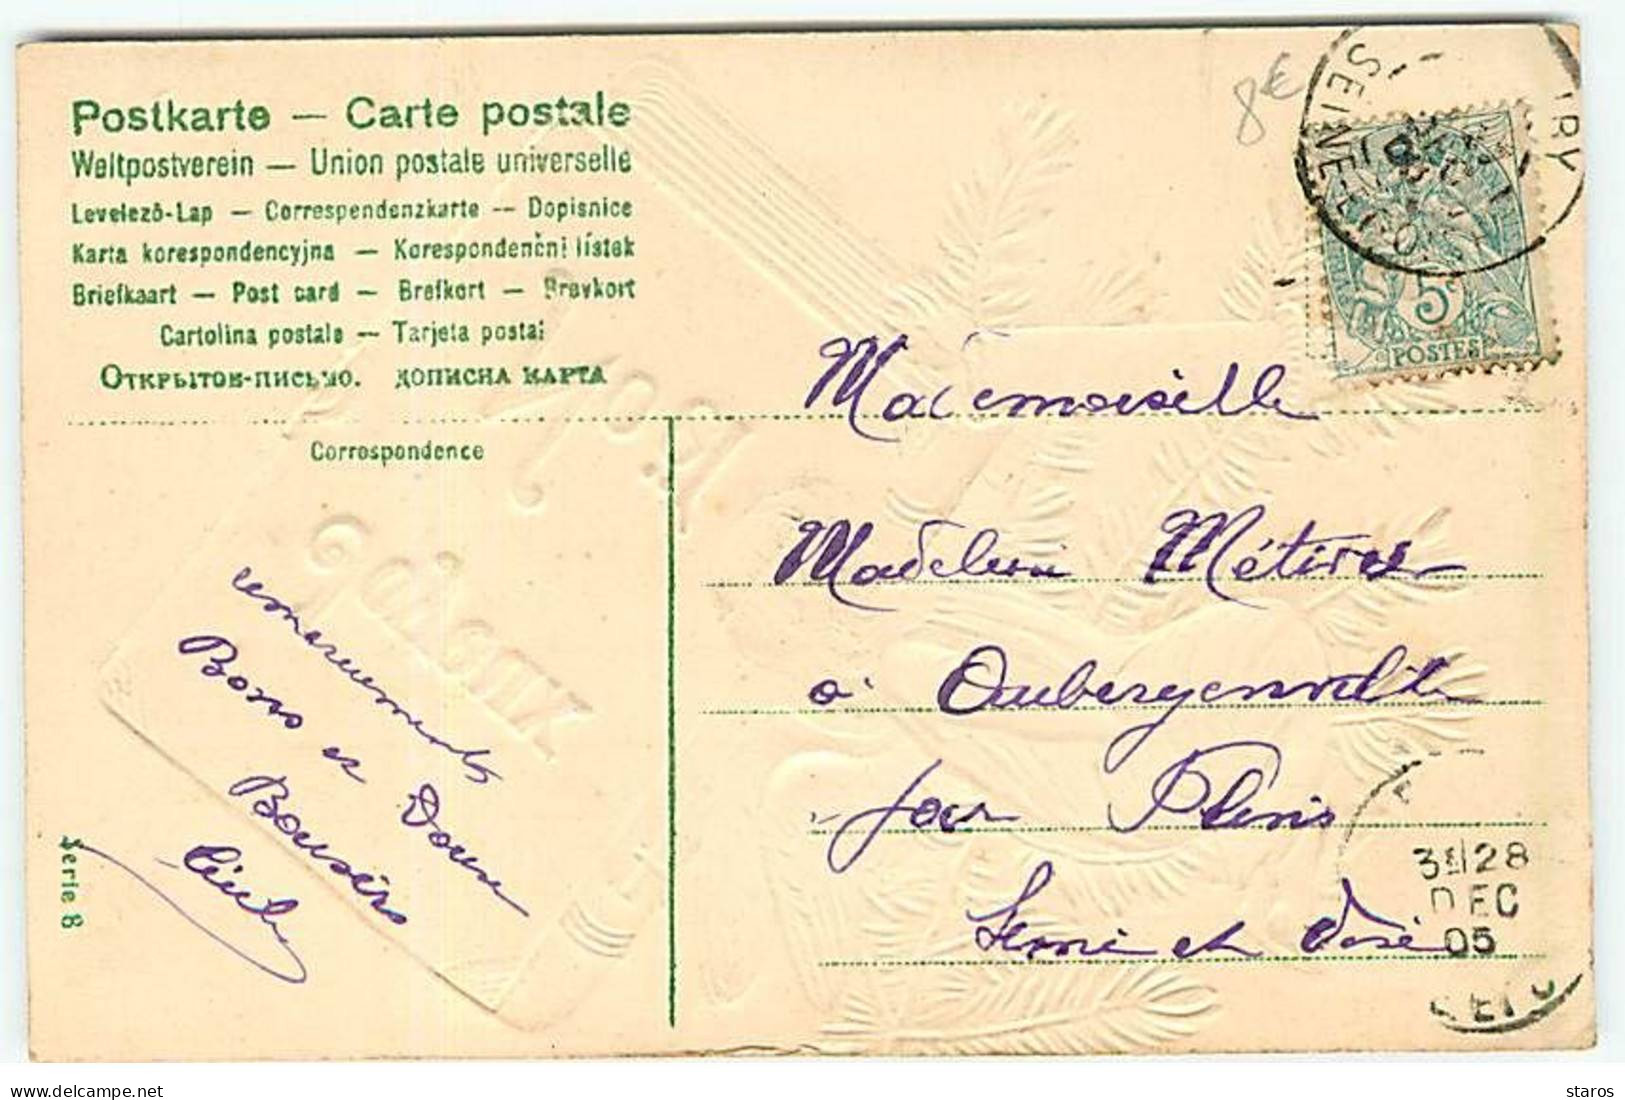 Postkarte — Carte postale
Weltpostverein — Union postale universelle
Levelező-Lap — Correspendenzkarte — Dopisnice
Karta korespondencyjna — Korespondenční lístek
Briefkaart — Post card — Brefkort — Brevkort
Cartolina postale — Tarjeta postal
Открытое-письмо. дописна карта
Correspondence
8€
SEINE-ET-OISE
5c
POSTES
Mademoiselle
Madeleine Métivier
à Aubergenville
par
Seine et Oise
remerciements
Bons et Doux
Baisers
Cécile
Serie 8
28
DEC
05
staros
delcampe.net